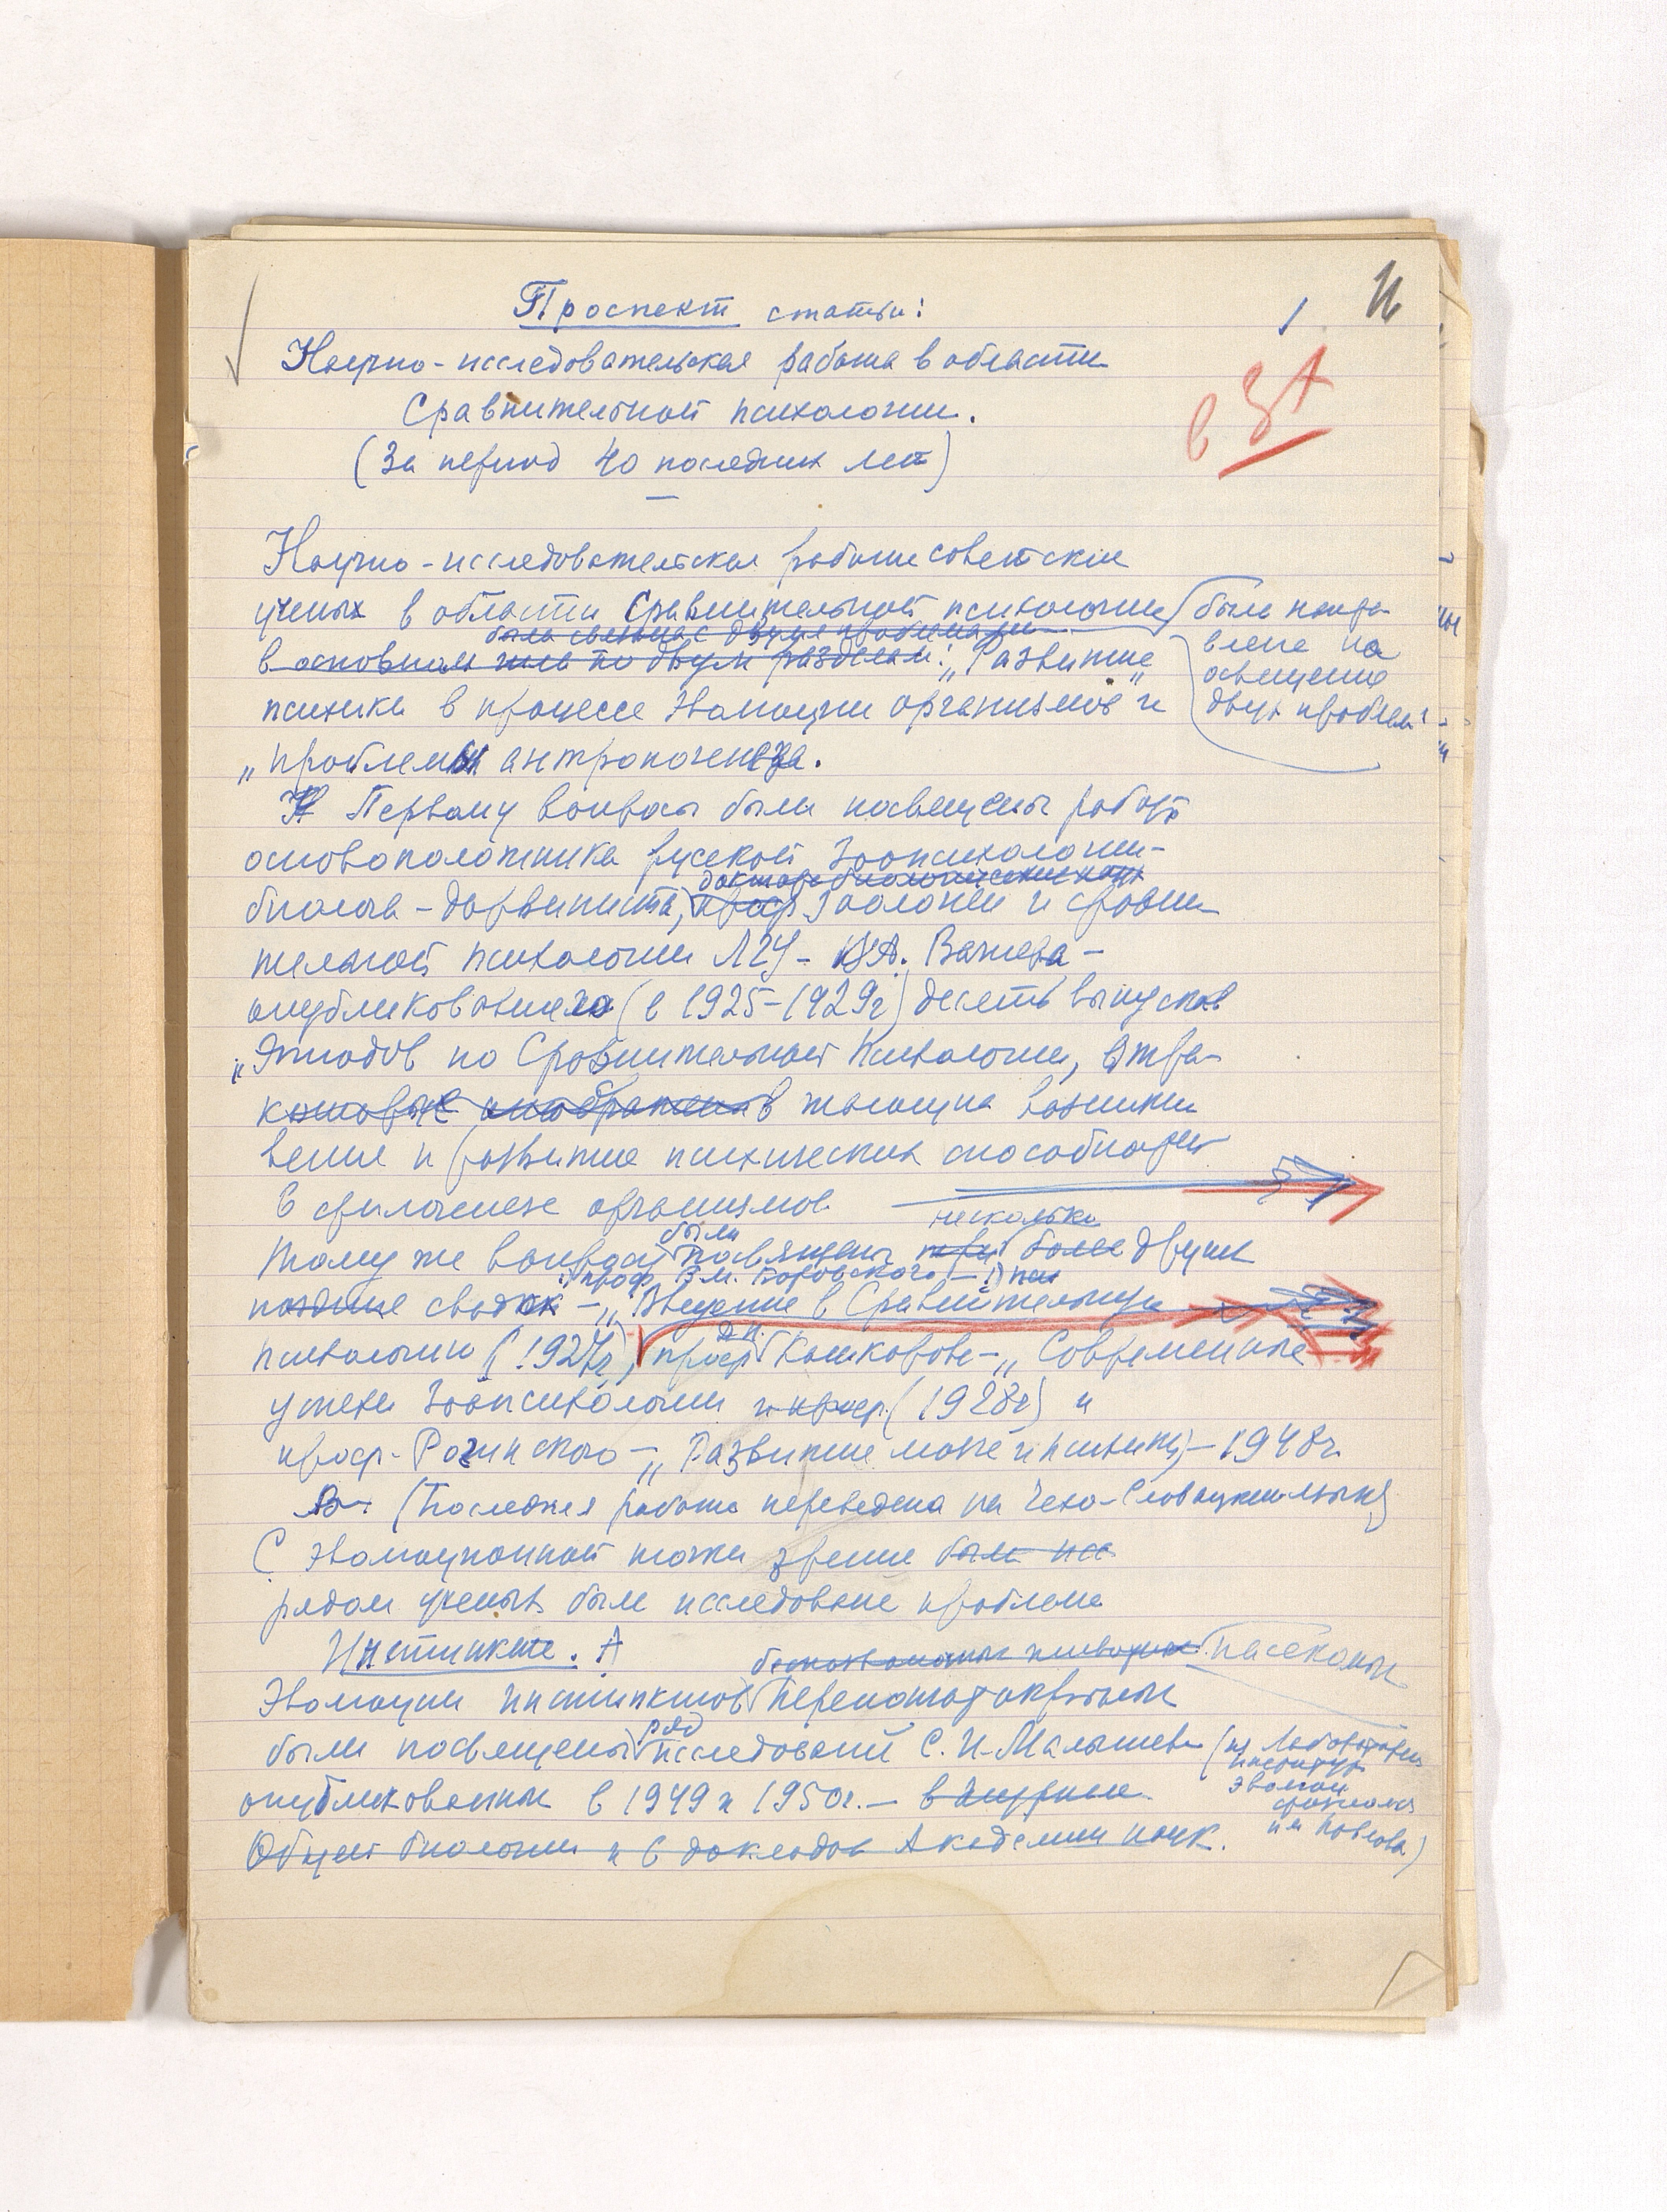 1
Проспект статьи:
Научно-исследовательская работа в области
Сравнительной психологии.
в ЗА
(За период 40 последних лет)
Научно-исследовательская работа советских
ученых в области Сравнительной психологии была напра-
влена на
освещение
двух проблем:
была связана с двумя проблемами
в основном шла по двум разделам: „Развитие
психики в процессе эволюции организмов" и
„проблемы антропогенеза.
К Первому вопросу были посвящены работы
основоположника русской зоопсихологии-
доктора биологических наук
биолога-дарвиниста, проф. Зоологии и сравни
тельной психологии ЛГУ - В.А. Вагнера -
опубликовавшего (в 1925-1929г) десять выпусков
„Этюдов по Сравнительной Психологии, в тра-
ктующих возникно
вение и развитие психических способностей
в филогенезе организмов.
несколько
Тому же вопросу были посвящены три более двух
проф. В.М. Боровского - 1)
позднее сводок - „Введение в Сравнительную
психологию (1927г), проф. Кашкарова - „Современные
успехи зоопсихологии и проф. (1928г) и
проф. Рогинского - „Развитие мозга и психики - 1948г.
(Последняя работа переведена на Чехо-Словацкий язык)
С эволюционной точки зрения был исс
рядом ученых была исследована проблема
Инстинкта. А
беспозвоночных животных насекомых
Эволюции инстинктов Перепончатокрылых
были посвящены ряд исследований С.И. Малышева (из Лаборатории
Института
эволюц
физиолог
им Павлова)
опубликованных в 1949 и 1950г. - в журнале
Общей биологии и в докладов Академии наук.